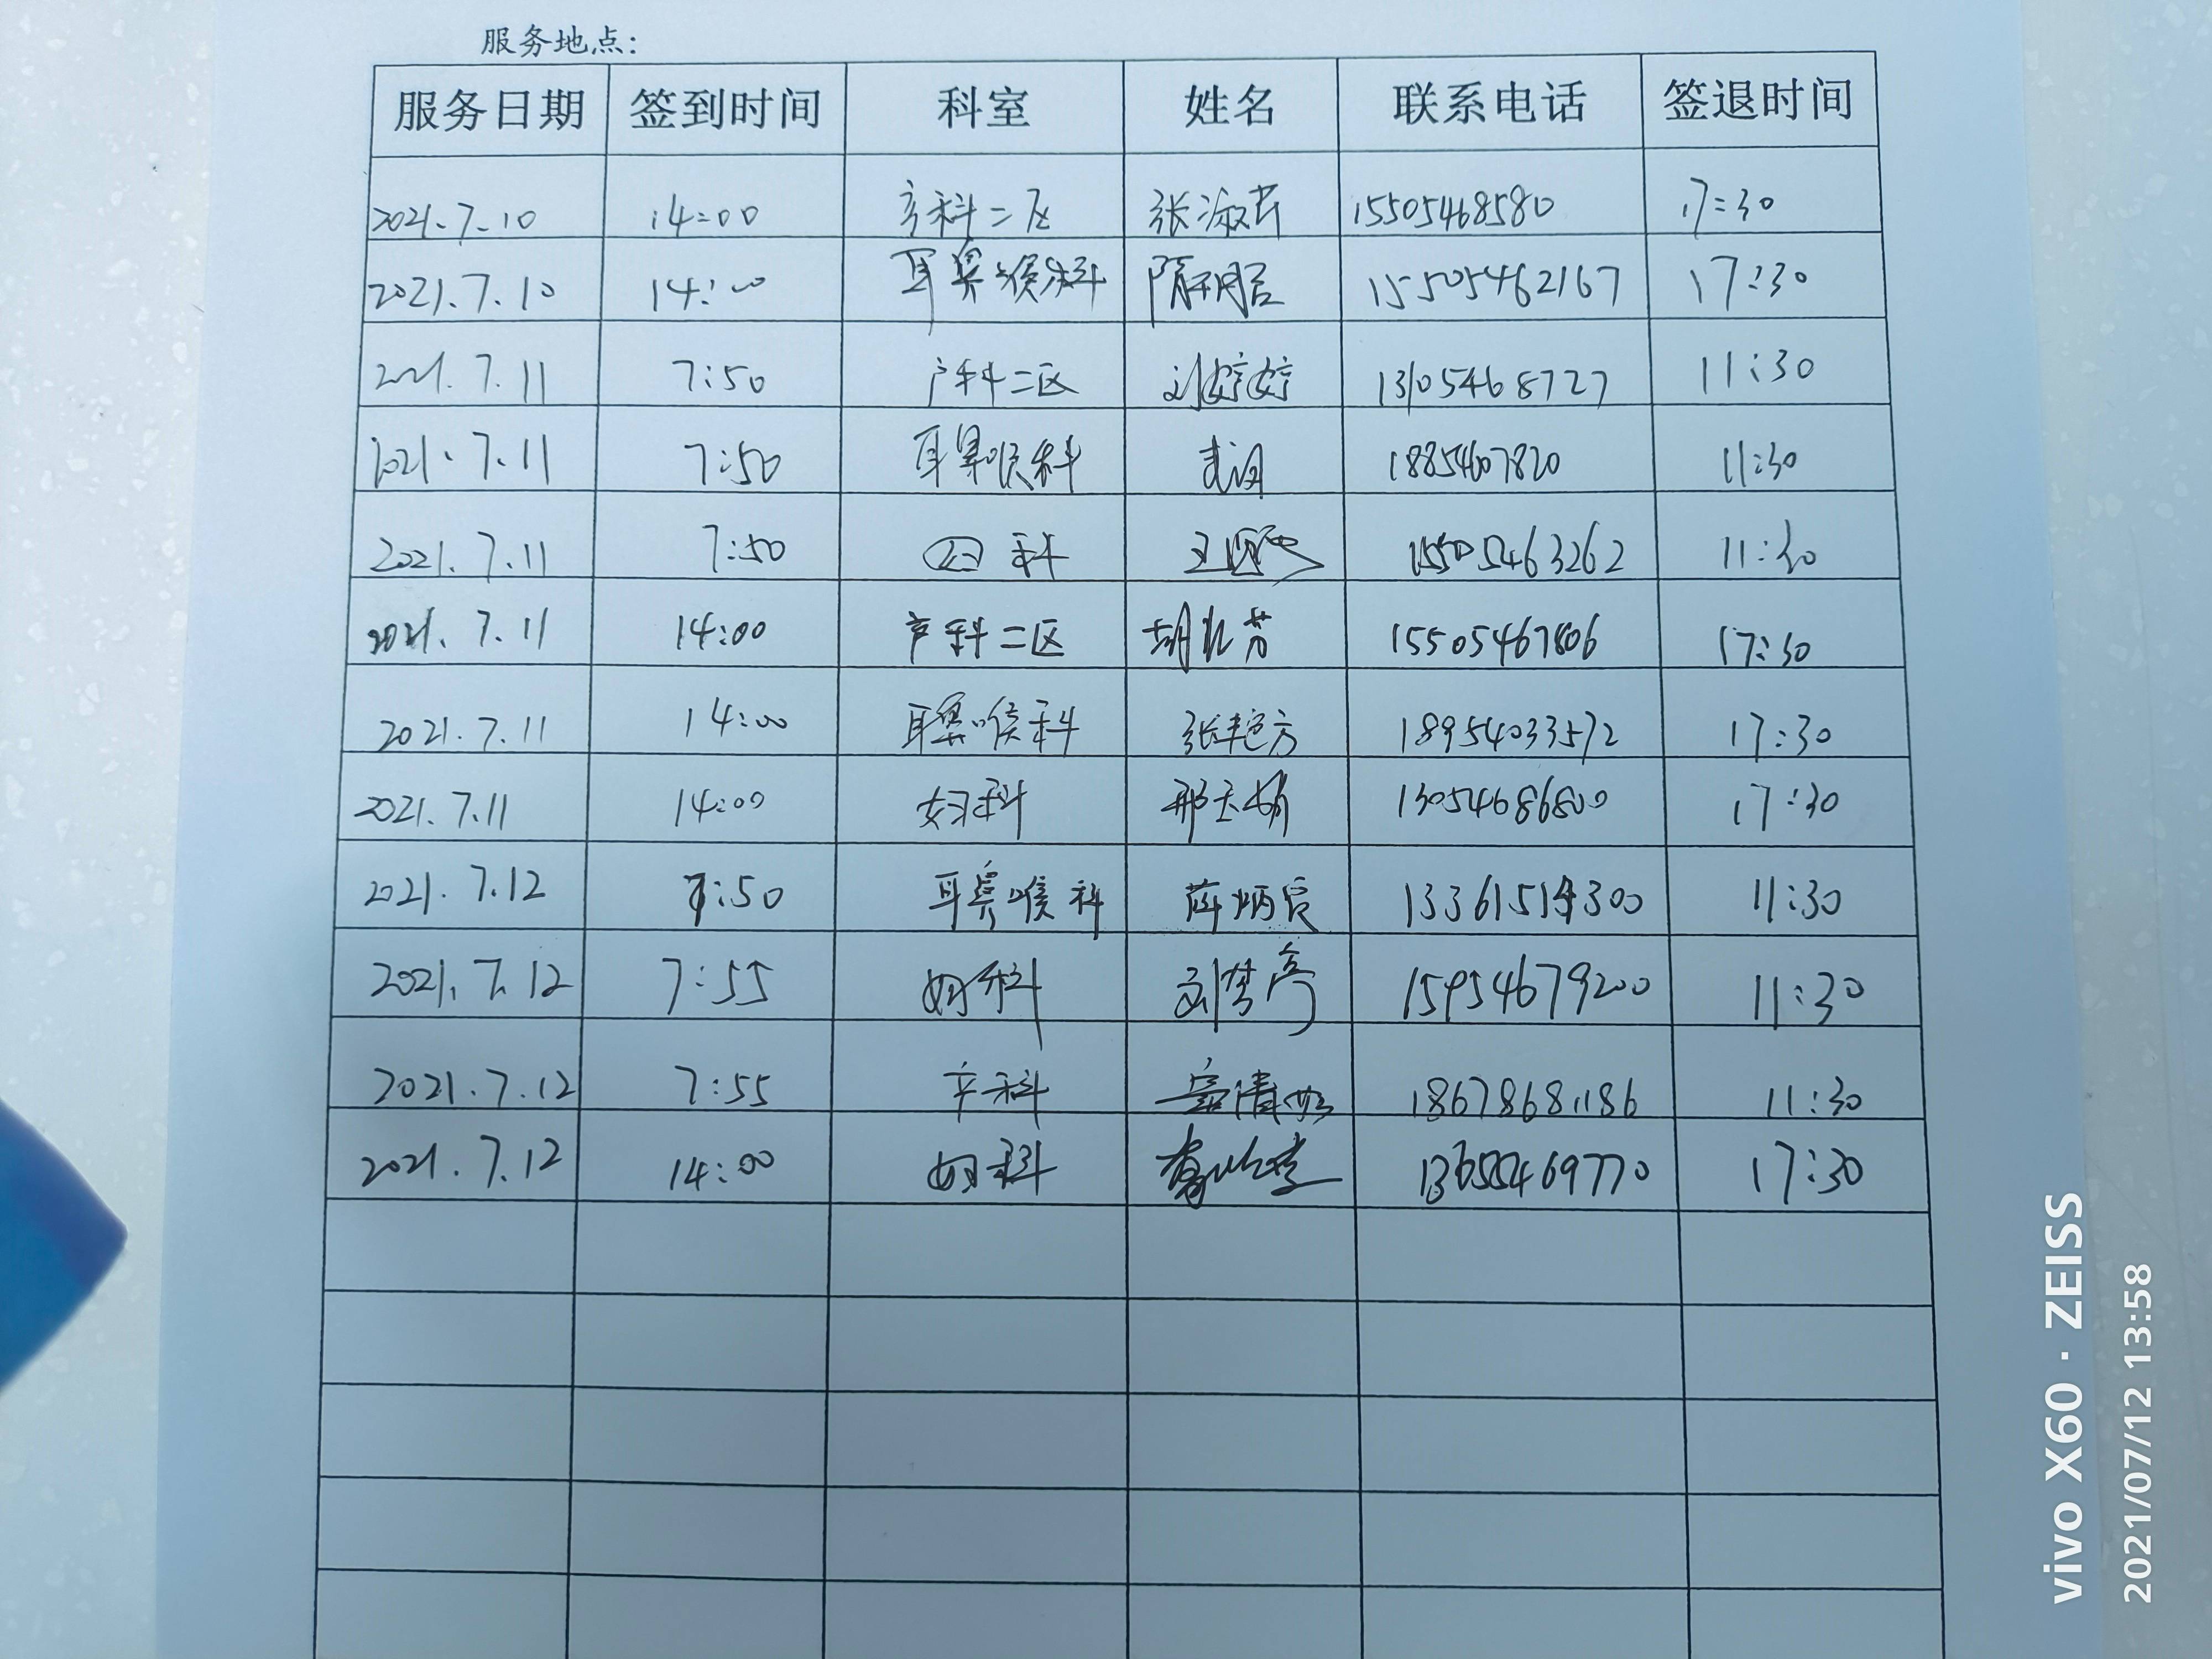 服务地点：
服务日期 签到时间 科室 姓名 联系电话 签退时间
2021.7.10 14:00 产科二区 张淑芹 15505468580 17:30
2021.7.10 14:00 耳鼻喉科 15505462167 17:30
2021.7.11 7:50 产科二区 刘婷婷 13105468727 11:30
2021.7.11 7:50 耳鼻喉科 18854607820 11:30
2021.7.11 7:50 科 15505463262 11:30
2021.7.11 14:00 产科二区 胡 芳 15505467806 17:30
2021.7.11 14:00 耳鼻喉科 张艳方 18954033572 17:30
2021.7.11 14:00 妇科 邢玉娟 13054686800 17:30
2021.7.12 7:50 耳鼻喉科 薛炳良 11:30
2021.7.12 7:55 妇科 刘梦彦 15954679200 11:30
2021.7.12 7:55 产科 18678681186 11:30
2021.7.12 14:00 妇科 17:30
vivo X60 · ZEISS
2021/07/12 13:58